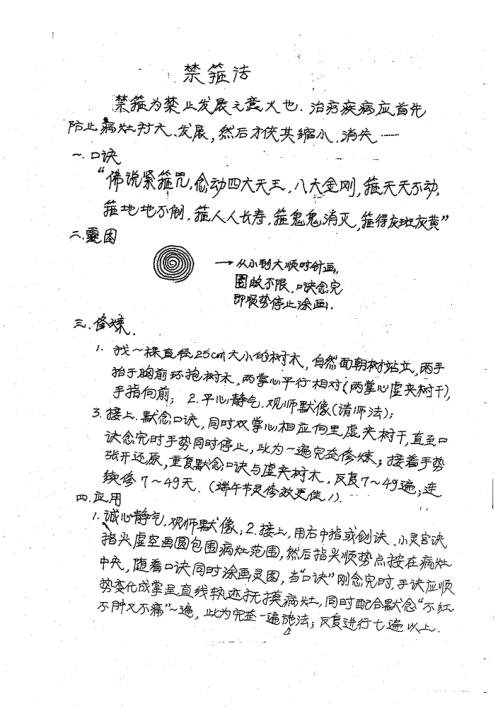 禁箍法
禁箍为禁止发展之意义也. 治疗疾病应首先
防止病灶扩大.发展,然后才使其缩小.消失——
一.口诀
“佛说紧箍咒,念动四大天王,八大金刚,箍天天不动,
箍地地不倒.箍人人长寿.箍鬼鬼消灭,箍得灰斑灰黄”
二.靈图
→从小到大顺时针画,
圈数不限.口诀念完
即顺势停止涂画.
三.修炼.
1. 找一棵直径25cm大小的树木,自然面朝树站立,两手
抬于胸前环抱树木,两掌心平行相对(两掌心虚夹树干),
手指向前; 2.平心静气.观师默像(请师法);
3.接上.默念口诀,同时双掌心相应向里虚夹树干,直至口
诀念完时手势同时停止,此为一遍完整修炼;接着手势
张开还原,重复默念口诀与虚夹树木,反复7~49遍;连
续修7~49天.(端午节灵修效更佳!).
四.应用
1.诚心静气.观师默像;2.接上,用右中指或剑诀.小灵官诀
指头虚空画圆包围病灶范围,然后指头顺势点按在病灶
中央,随着口诀同时涂画灵图,当“口诀”刚念完时.手诀应顺
势变化成掌呈直线轨迹抚摸病灶,同时配合默念“不红
不肿又不痛”一遍,此为完整一遍施法;反复进行七遍以上.